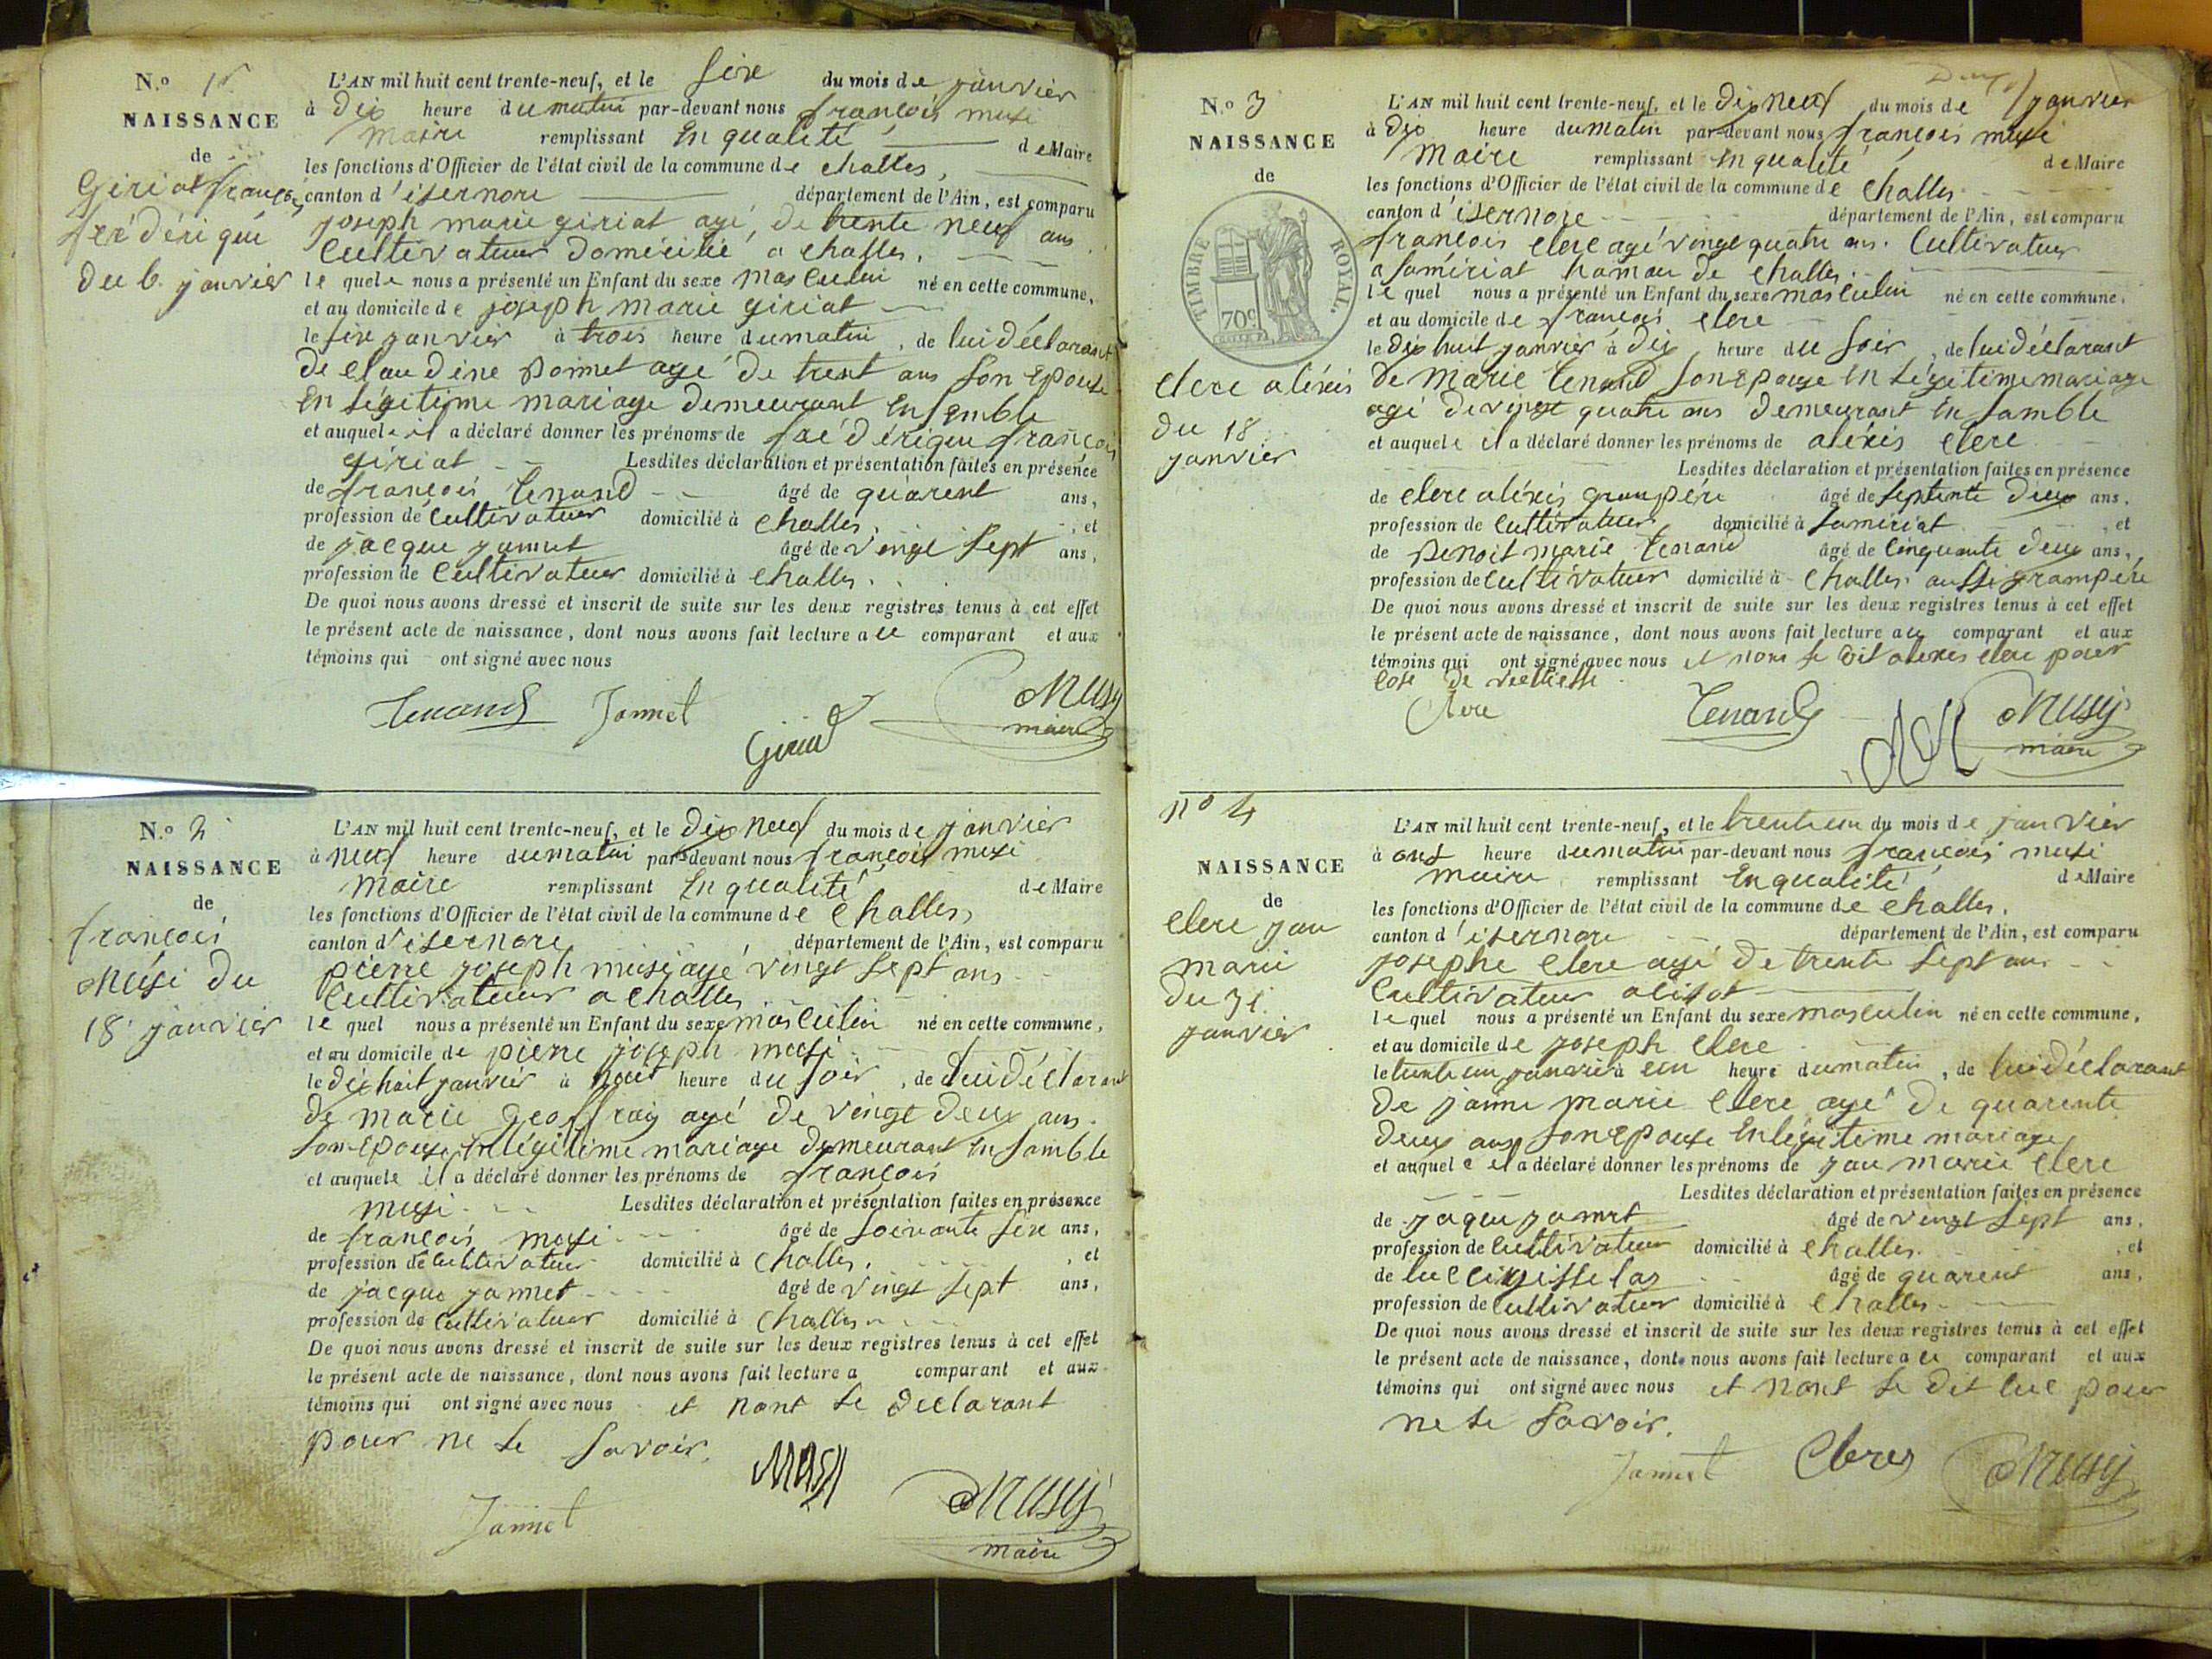 N.o 1r
NAISSANCE
de
Giriat françois
frédérique
du 6. janvier
L'AN mil huit cent trente-neuf, et le sixe du mois de janvier
à dix heure du matin par-devant nous françois musi
maire remplissant En qualité de Maire
les fonctions d'Officier de l'état civil de la commune de challes,
canton d'isernore département de l'Ain, est comparu
joseph marie giriat agé, de trente neuf ans
Cultivateur domicilié a challes.
le quele nous a présenté un Enfant du sexe masculin né en cette commune,
et au domicile de joseph marie giriat
le sixe janvier à trois heure du matin, de lui déclarant
de claudine ponnet agé de trent ans son Epouse
En Légitime mariage demeurant Ensemble
et auquele il a déclaré donner les prénoms de frédérique françois
giriat Lesdites déclaration et présentation faites en présence
de françois tenand âgé de quarent ans,
profession de Cultivateur domicilié à challes. , et
de jacque jannet âgé de vingt sept ans,
profession de Cultivateur domicilié à challes.
De quoi nous avons dressé et inscrit de suite sur les deux registres tenus à cet effet
le présent acte de naissance, dont nous avons fait lecture a ce comparant et aux
témoins qui ont signé avec nous
Tenand Jannet Musy
maire
N.o 2
NAISSANCE
de
françois
Musi du
18 janvier
L'AN mil huit cent trente-neuf, et le dix neuf du mois de janvier
à neuf heure du matin par-devant nous françois musi
maire remplissant En qualité de Maire
les fonctions d'Officier de l'état civil de la commune de Challes
canton d'isernore département de l'Ain, est comparu
pierre joseph musi agé vingt sept ans
Cultivateur a challes
le quel nous a présenté un Enfant du sexe masculin né en cette commune,
et au domicile de pierre joseph musi
le dixhuit janvier à neuf heure du soir, de lui déclarant
de marie geoffray agé de vingt deux ans.
son Epouse En légitime mariage demeurant en samble
et auquele il a déclaré donner les prénoms de françois
musi Lesdites déclaration et présentation faites en présence
de françois musi âgé de soixante sixe ans,
profession de Cultivateur domicilié à Challes. , et
de jacque jannet âgé de vingt sept ans,
profession de Cultivateur domicilié à Challes
De quoi nous avons dressé et inscrit de suite sur les deux registres tenus à cet effet
le présent acte de naissance, dont nous avons fait lecture a comparant et aux
témoins qui ont signé avec nous et nont le declarant
pour ne le savoir.
Jannet Musy Musy
maire
N.o 3
NAISSANCE
de
TIMBRE ROYAL.
70c
Clerc aléxis
du 18
janvier
L'AN mil huit cent trente-neuf, et le dix neuf du mois de janvier
à dix heure du matin par-devant nous françois musi
maire remplissant En qualité de Maire
les fonctions d'Officier de l'état civil de la commune de Challes
canton d'isernore département de l'Ain, est comparu
françois clerc agé vingt quatre ans. Cultivateur
a samiriat hamau de challes
le quel nous a présenté un Enfant du sexe masculin né en cette commune,
et au domicile de françois clerc
le dix huit janvier à dix heure du soir, de lui déclarant
de marie tenand son epouse En Légitime mariage
agé de vingt quatre ans demeurant En samble
et auquele il a déclaré donner les prénoms de aléxis clerc
Lesdites déclaration et présentation faites en présence
de clerc aléxis grampére âgé de septente deux ans,
profession de Cultivateur domicilié à samiriat , et
de Benoit marie tenand âgé de Cinquante deux ans,
profession de Cultivateur domicilié à Challes aussi grampére
De quoi nous avons dressé et inscrit de suite sur les deux registres tenus à cet effet
le présent acte de naissance, dont nous avons fait lecture a ce comparant et aux
témoins qui ont signé avec nous et nont le dit alexis clerc pour
cose de vielliesse
Clerc Tenand Musy
maire
no 4
NAISSANCE
de
Clerc jan
marie
du 31.
janvier
L'AN mil huit cent trente-neuf, et le trente un du mois de janvier
à onf heure du matin par-devant nous françois musi
maire remplissant En qualité de Maire
les fonctions d'Officier de l'état civil de la commune de challes.
canton d'isernore département de l'Ain, est comparu
josephe clerc agé de trente sept ans
Cultivateur
le quel nous a présenté un Enfant du sexe masculin né en cette commune,
et au domicile de joseph clerc
le trente un janvier à un heure du matin, de lui déclarant
de janne marie clerc agé de quarente
deux ans son Epouse En légitime mariage
et auquel e il a déclaré donner les prénoms de jan marie clerc
Lesdites déclaration et présentation faites en présence
de jaque jannet âgé de vingt sept ans,
profession de Cultivateur domicilié à challes. , et
de âgé de quarent ans,
profession de Cultivateur domicilié à challes
De quoi nous avons dressé et inscrit de suite sur les deux registres tenus à cet effet
le présent acte de naissance, dont nous avons fait lecture a ce comparant et aux
témoins qui ont signé avec nous et nont le dit luc pour
ne le savoir.
Jannet Clerc Musy